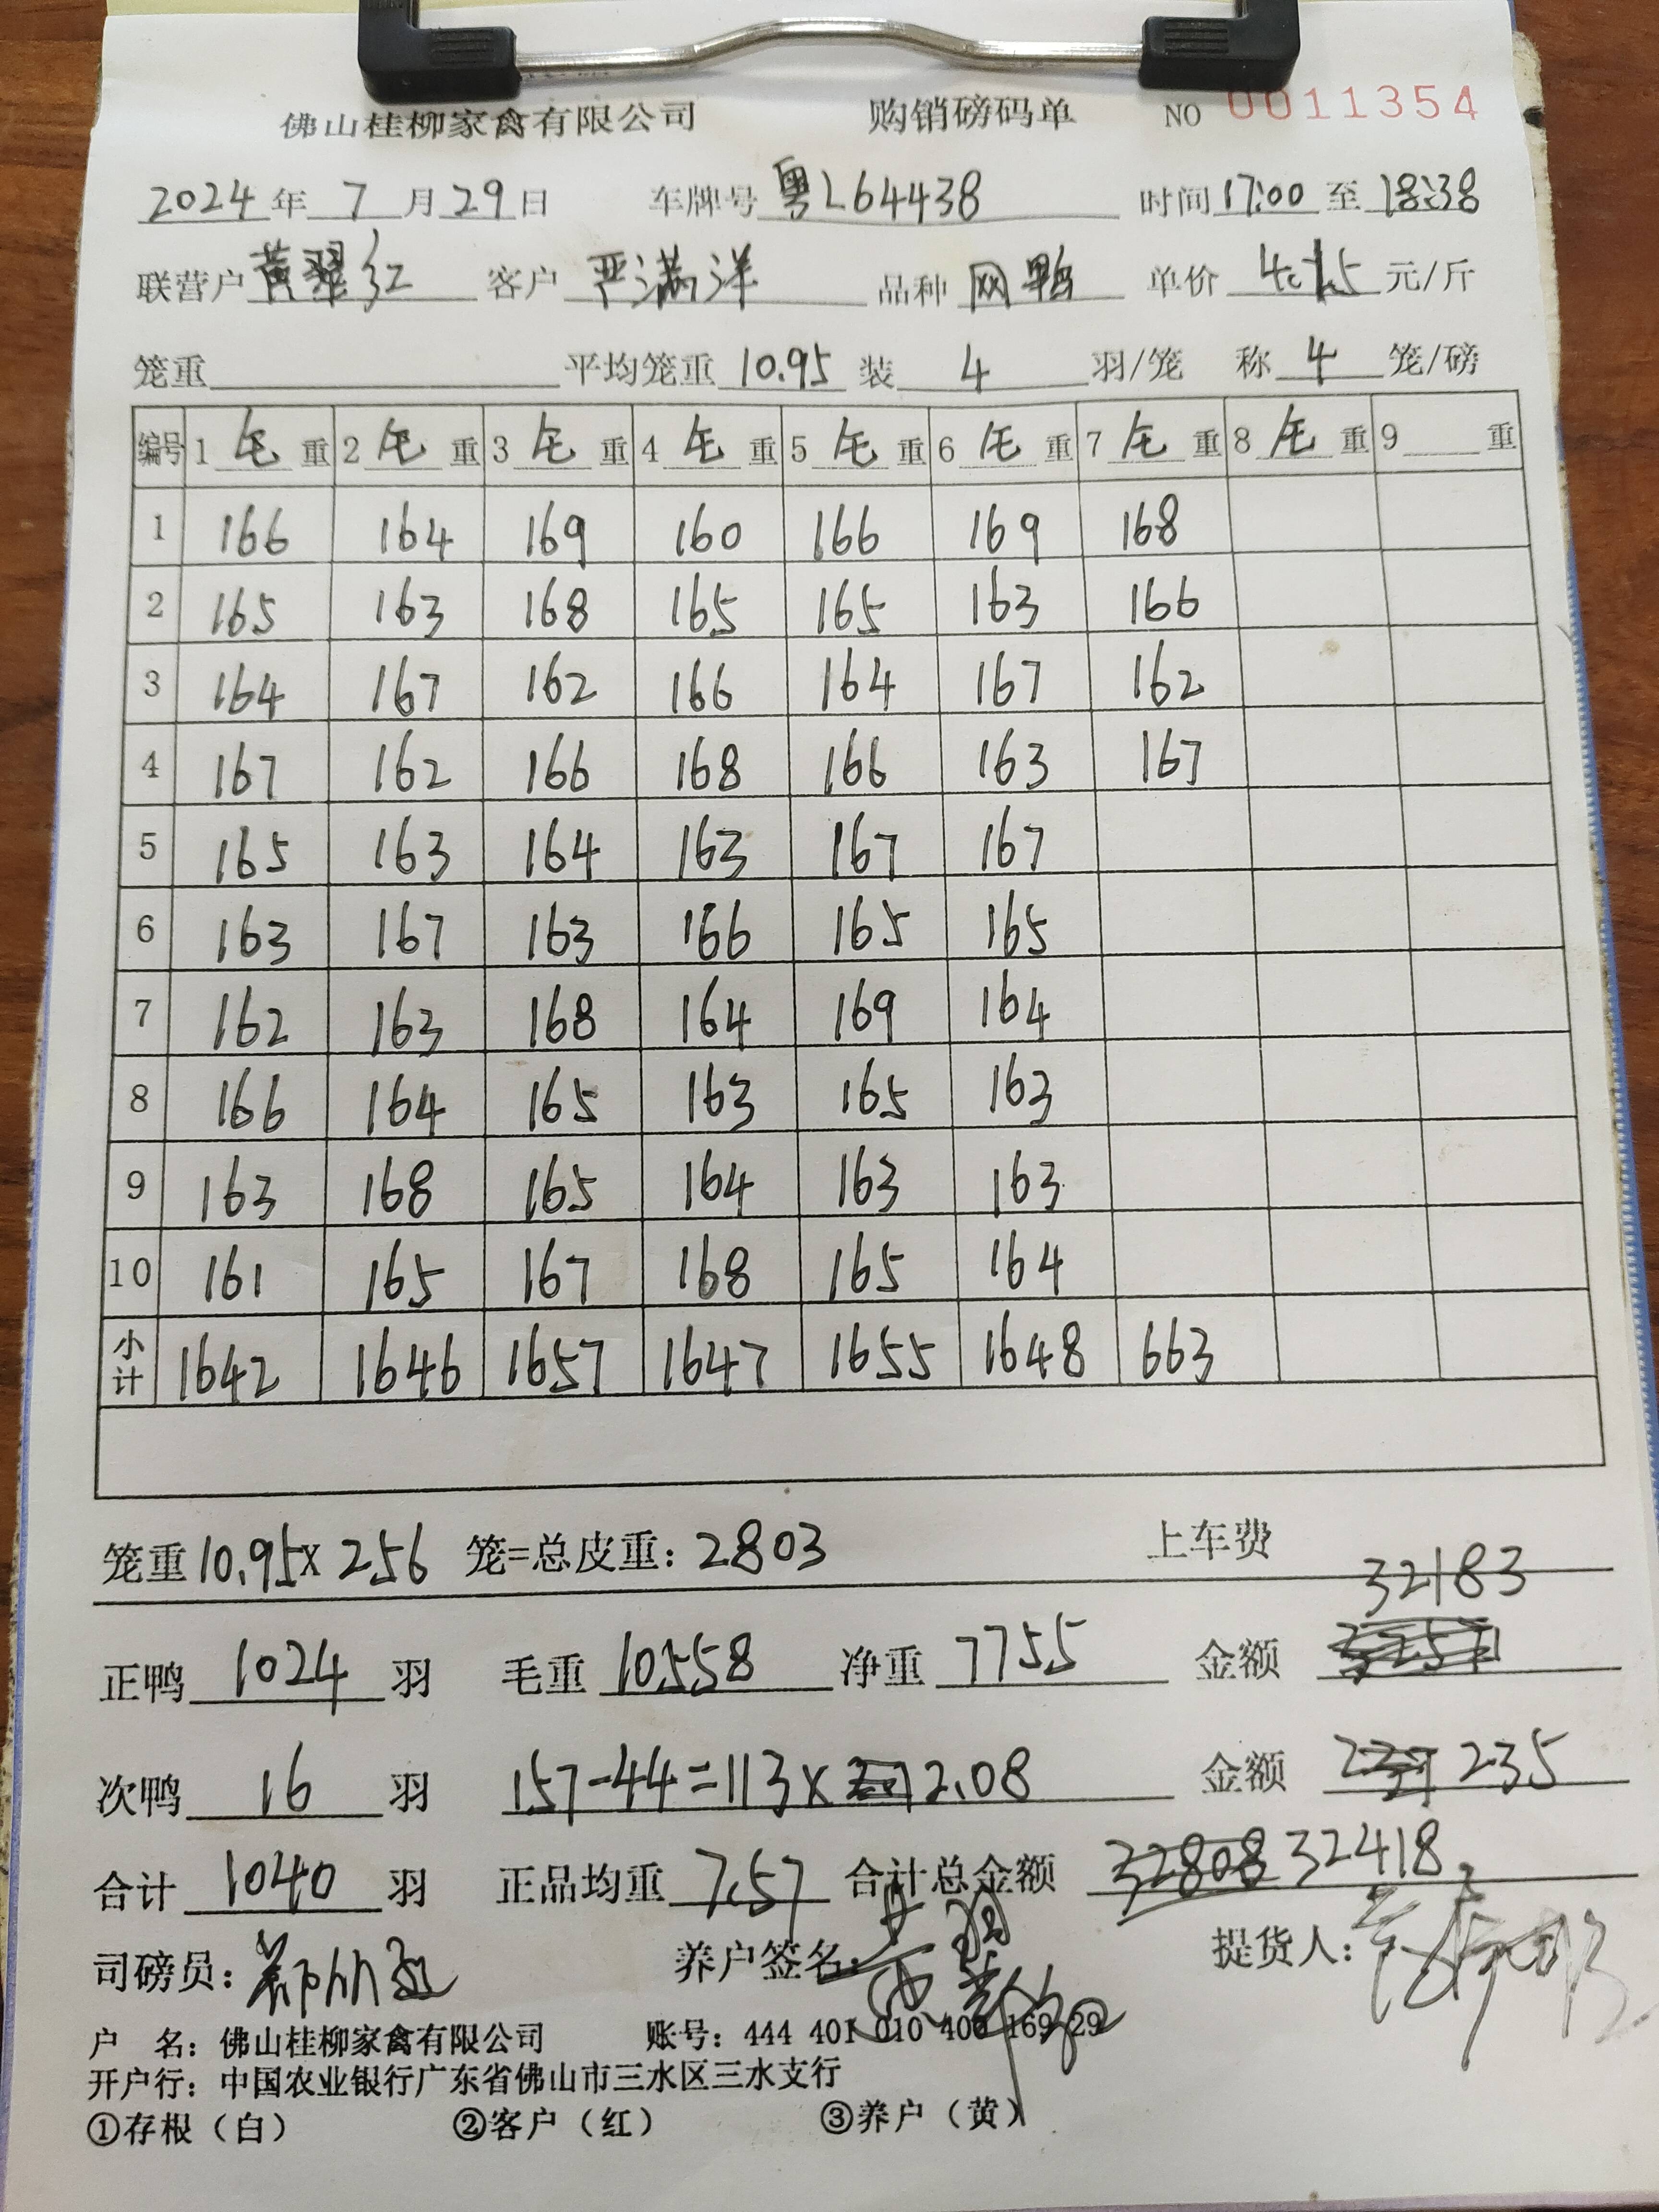 佛山桂柳家禽有限公司 购销磅码单 NO 0011354
2024年 7月 29日 车牌号 粤L64438 时间 17:00 至 18:38
联营户 黄翠红 客户 严满洋 品种 网鸭 单价 4.15 元/斤
笼重 平均笼重 10.95 装 4 羽/笼 称 4 笼/磅
编号 1 毛 重 2 毛 重 3 毛 重 4 毛 重 5 毛 重 6 毛 重 7 毛 重 8 毛 重 9 重
1 166 164 169 160 166 169 168
2 165 163 168 165 165 163 166
3 164 167 162 166 164 167 162
4 167 162 166 168 166 163 167
5 165 163 164 163 167 167
6 163 167 163 166 165 165
7 162 163 168 164 169 164
8 166 164 165 163 165 163
9 163 168 165 164 163 163
10 161 165 167 168 165 164
小计 1642 1646 1657 1647 1655 1648 663
笼重 10.95 x 256 笼=总皮重: 2803 上车费
32183
正鸭 1024 羽 毛重 10558 净重 7755 金额
次鸭 16 羽 157-44=113x 2.08 金额 235
合计 1040 羽 正品均重 7.57 合计总金额 32808 32418
司磅员: 养户签名: 提货人:
户 名: 佛山桂柳家禽有限公司 账号: 444 401 010 400 169 29
开户行: 中国农业银行广东省佛山市三水区三水支行
①存根（白） ②客户（红） ③养户（黄）